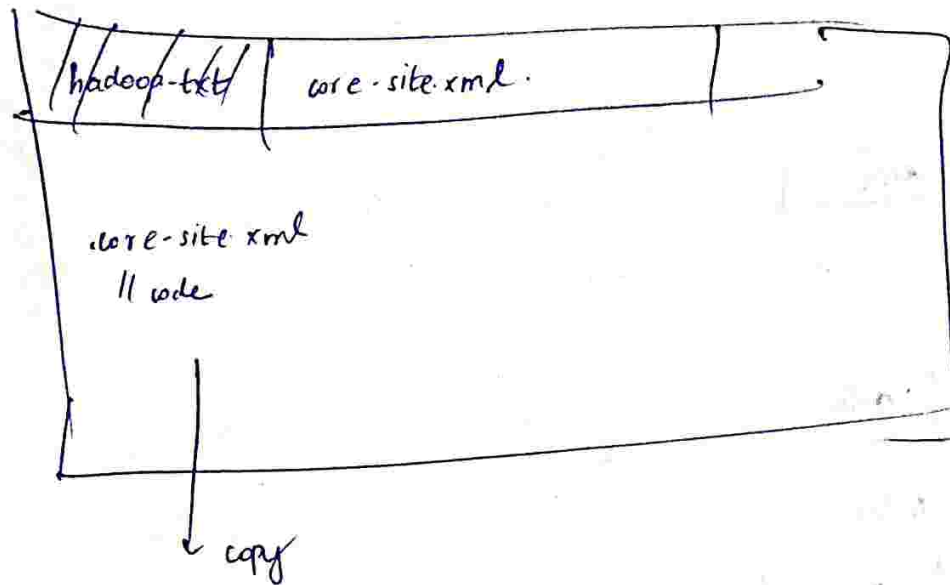 hadoop-txt core-site.xml.
core-site.xml
// code
copy